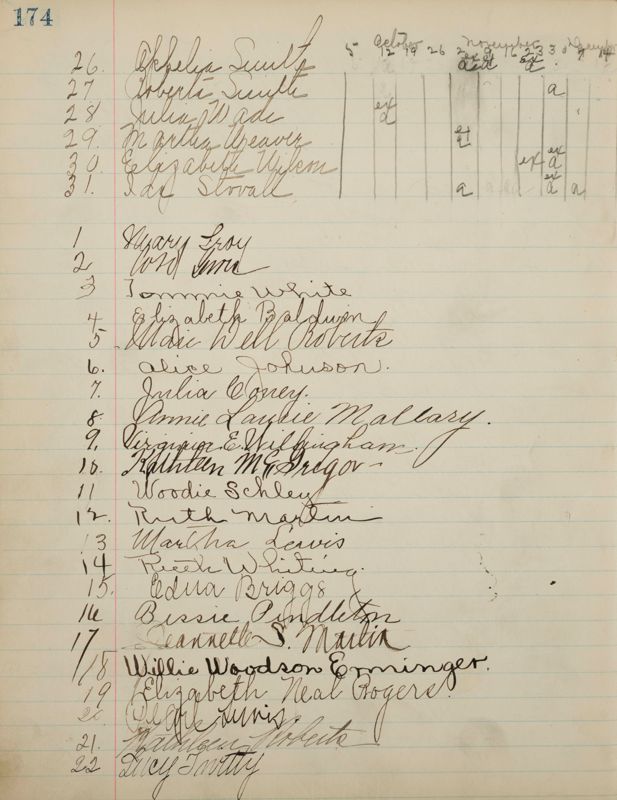 174
October November December
5 12 19 26 2 9 16 23 30 7 14
26. Ophelia Smith a
27 Roberta Smith a
28 Julia Wade ex a
29. Martha Weaver
30. Elizabeth Wilson ex ex a
31. Stovall a ex a a
1 Mary Troy
2
3 Tommie White
4 Elizabeth Baldwin
5. Marie Well Roberts
6. Alice Johnson.
7. Julia Coney.
8. Annie Laurie Mallary.
9. Virginia E. Willingham.
10. Kathleen McGregor
11 Woodie Schley
12. Ruth Martin
13 Martha Lewis
14 Ruth Whiting.
15. Edna Briggs
16 Bessie Pendleton
17 Jeannelle S. Martin
18 Willie Woodson Erminger.
19 Elizabeth Neal Rogers.
20
21. Kathleen Roberts
22 Lucy Twitty